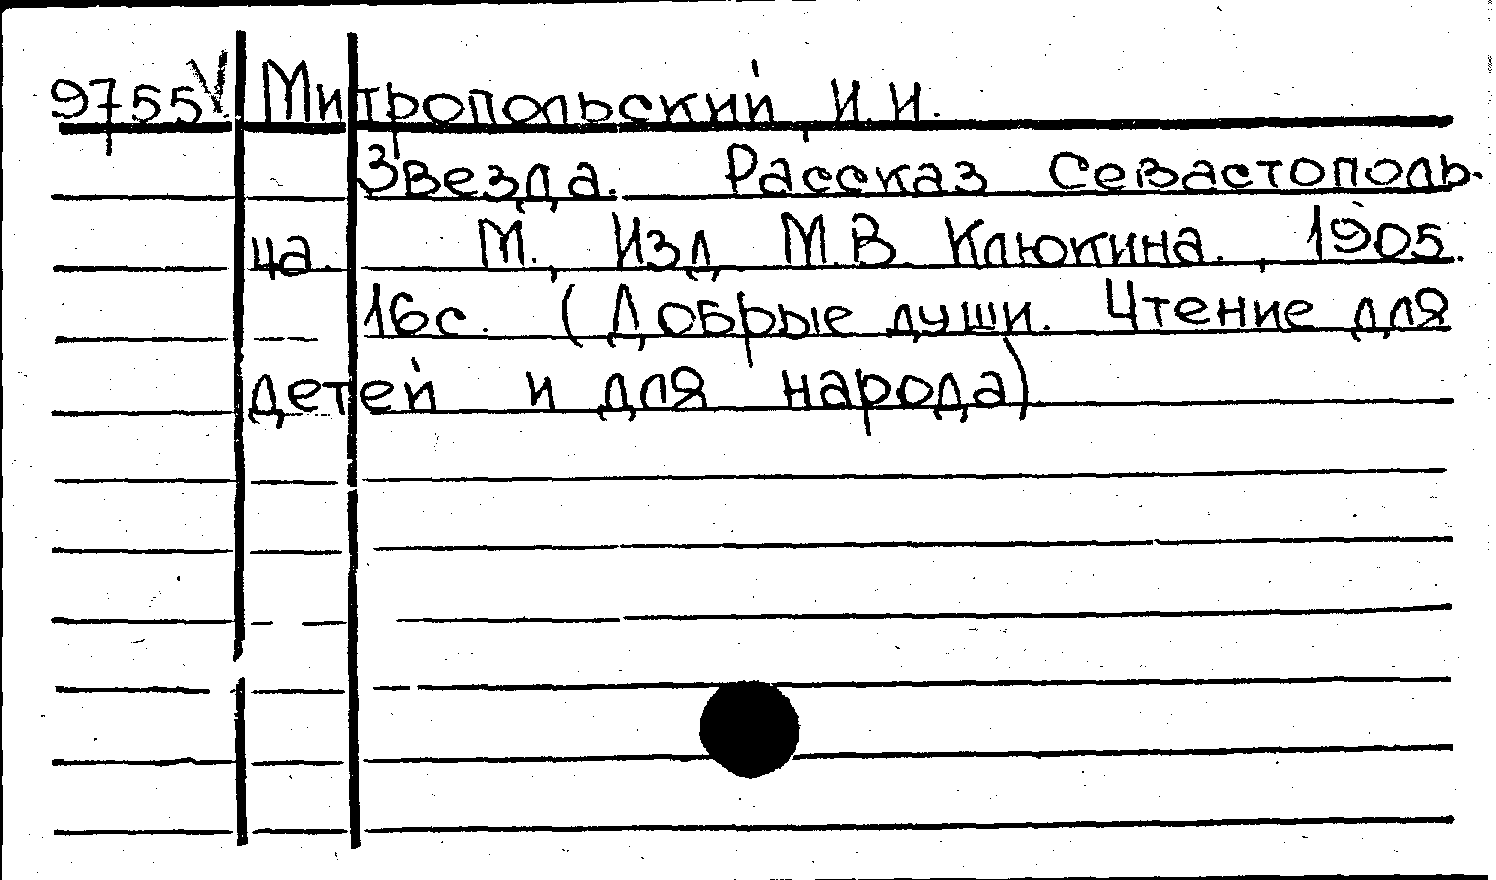 9755 V Митропольский И.И.
Звезда. Рассказ Севастополь-
ца. М., Изд. М.В. Клюкина., 1905.
16с. (Добрые души. Чтение для
детей и для народа)